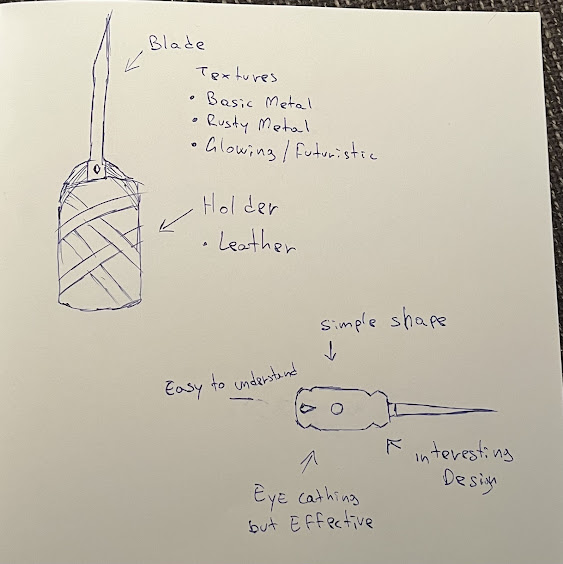 Blade
Textures
• Basic Metal
• Rusty Metal
• Glowing / Futuristic
Holder
• Leather
simple shape
Easy to understand
interesting
Design
EyE cathing
but Effective